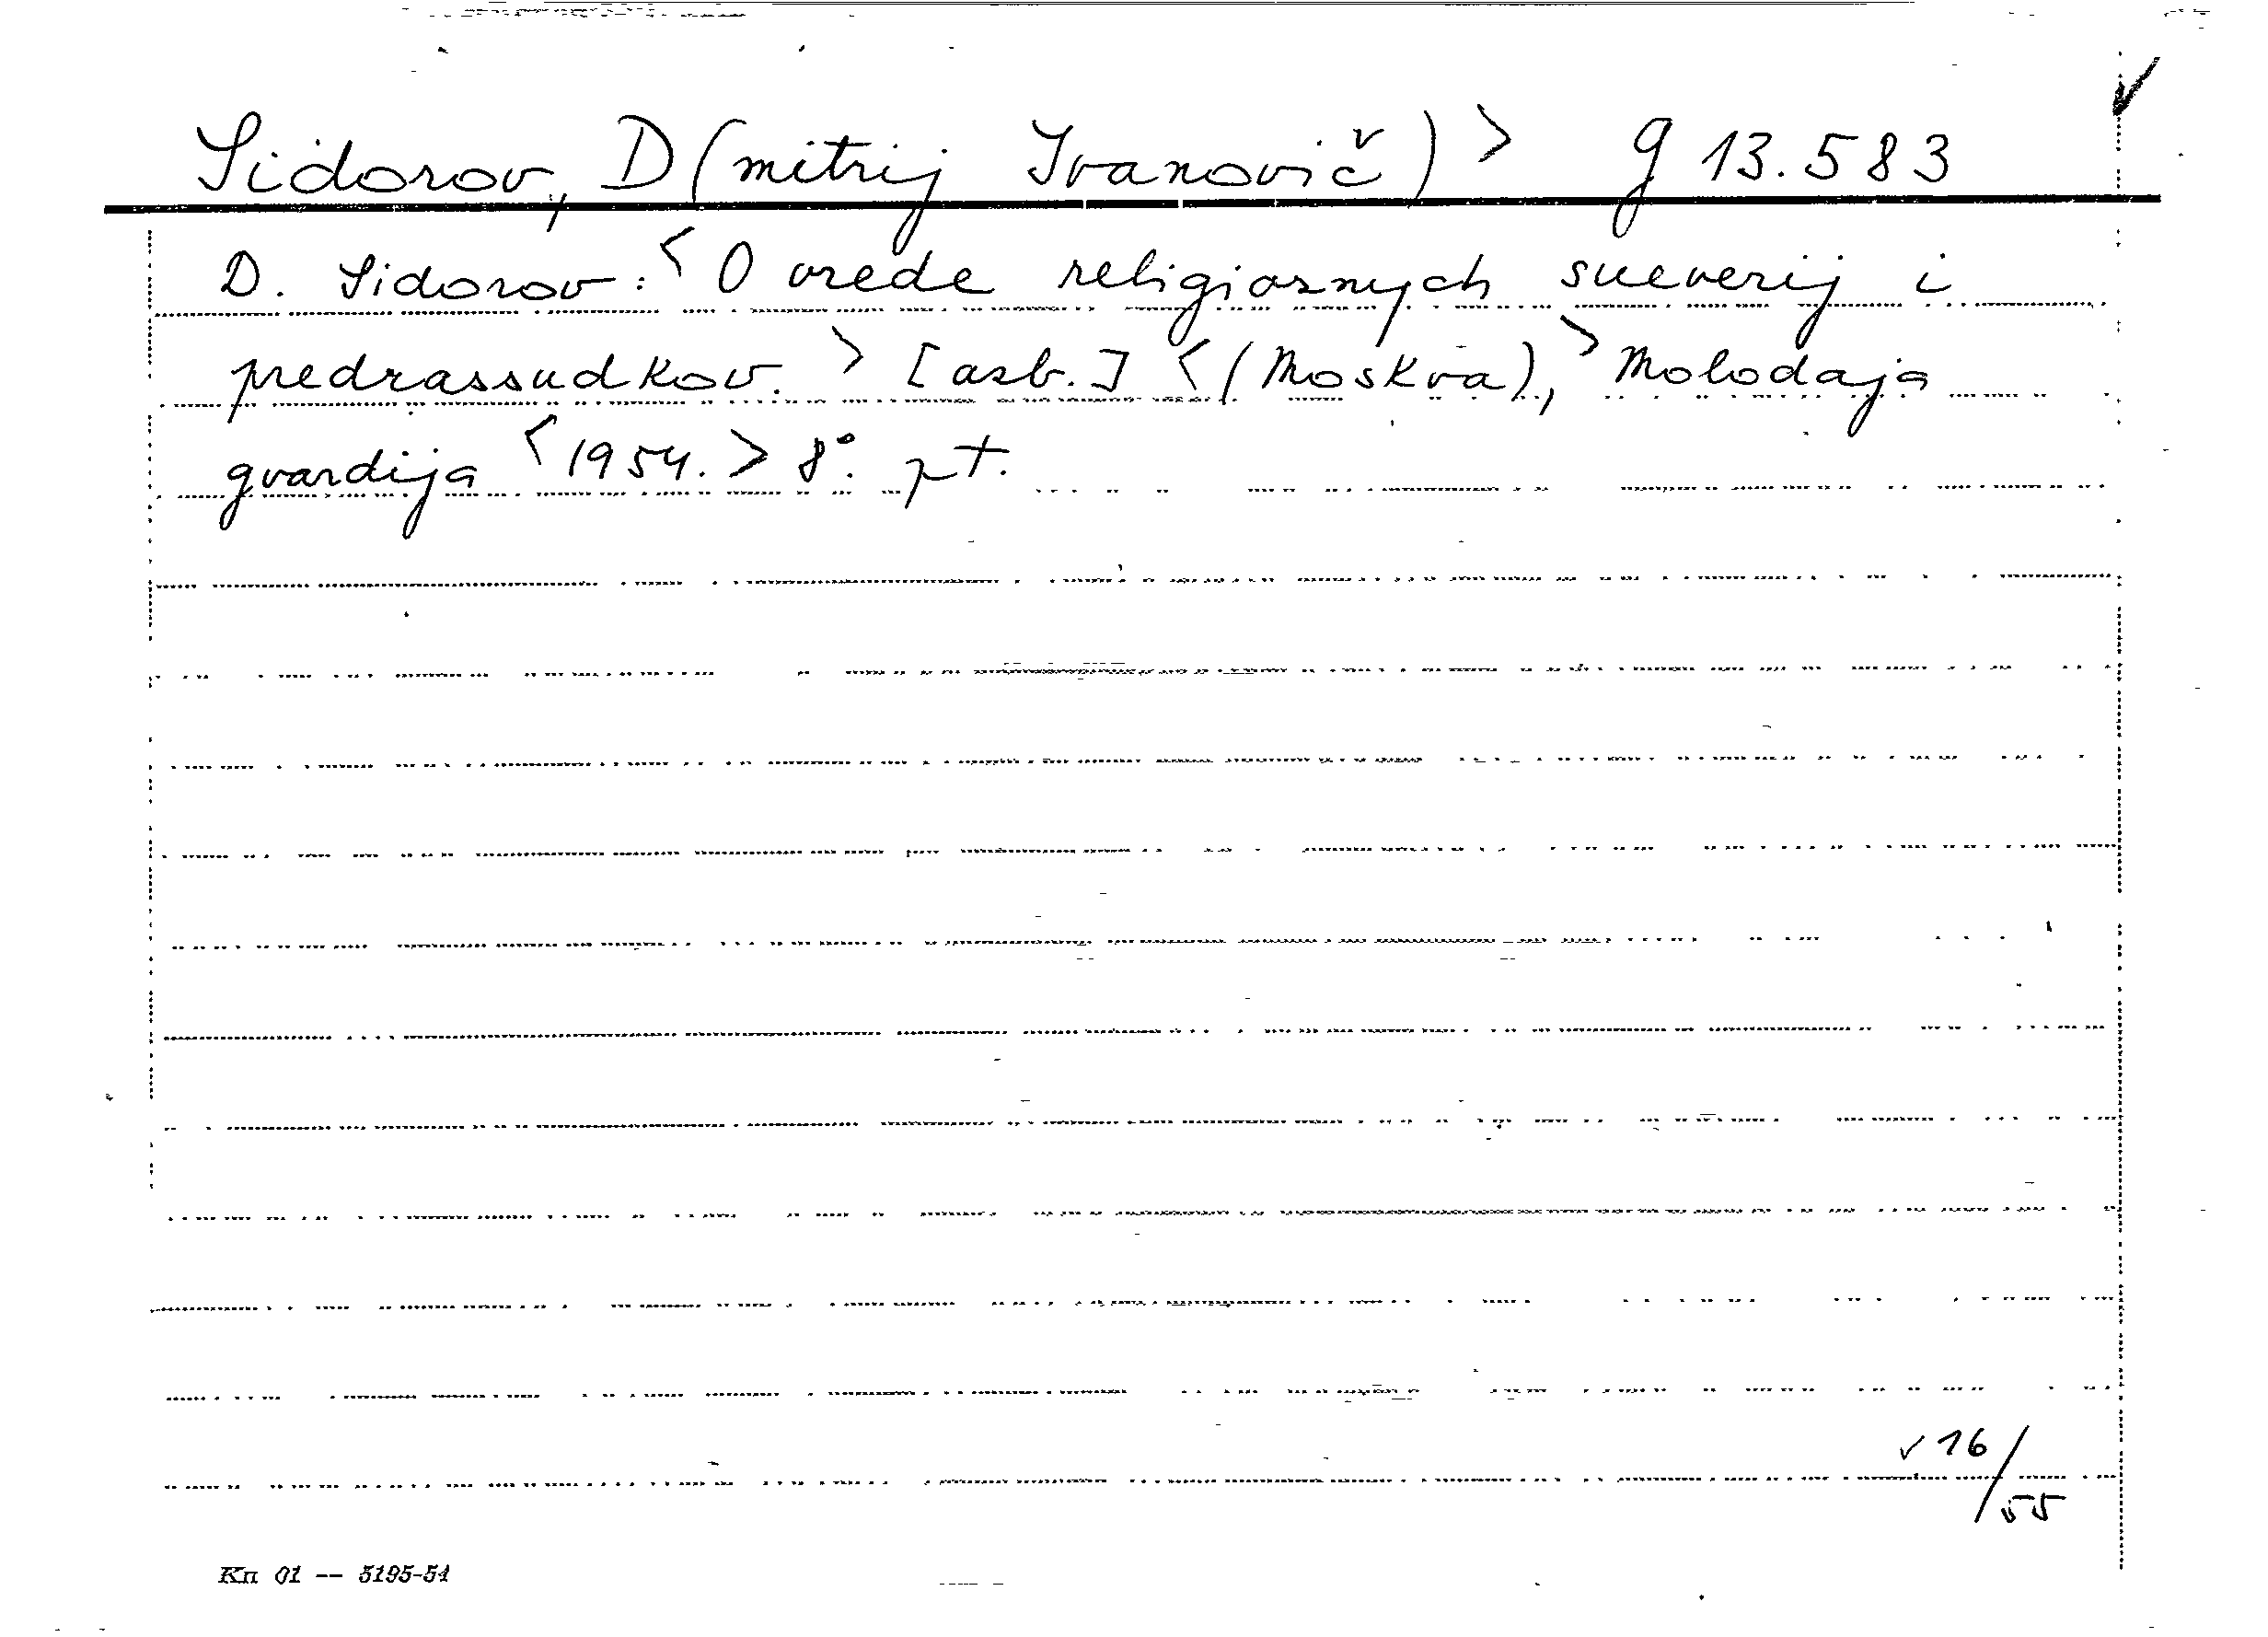 Sidorov, D(mitrij Ivanovič) > g 13.583
D. Sidorov: < O vrede religioznych sueverij i
predrassudkov. > [azb.] < (Moskva), > Molodaja
gvardija < 1954. > 8°. pt.
✓ 16/55
Кп 01 -- 5195-54